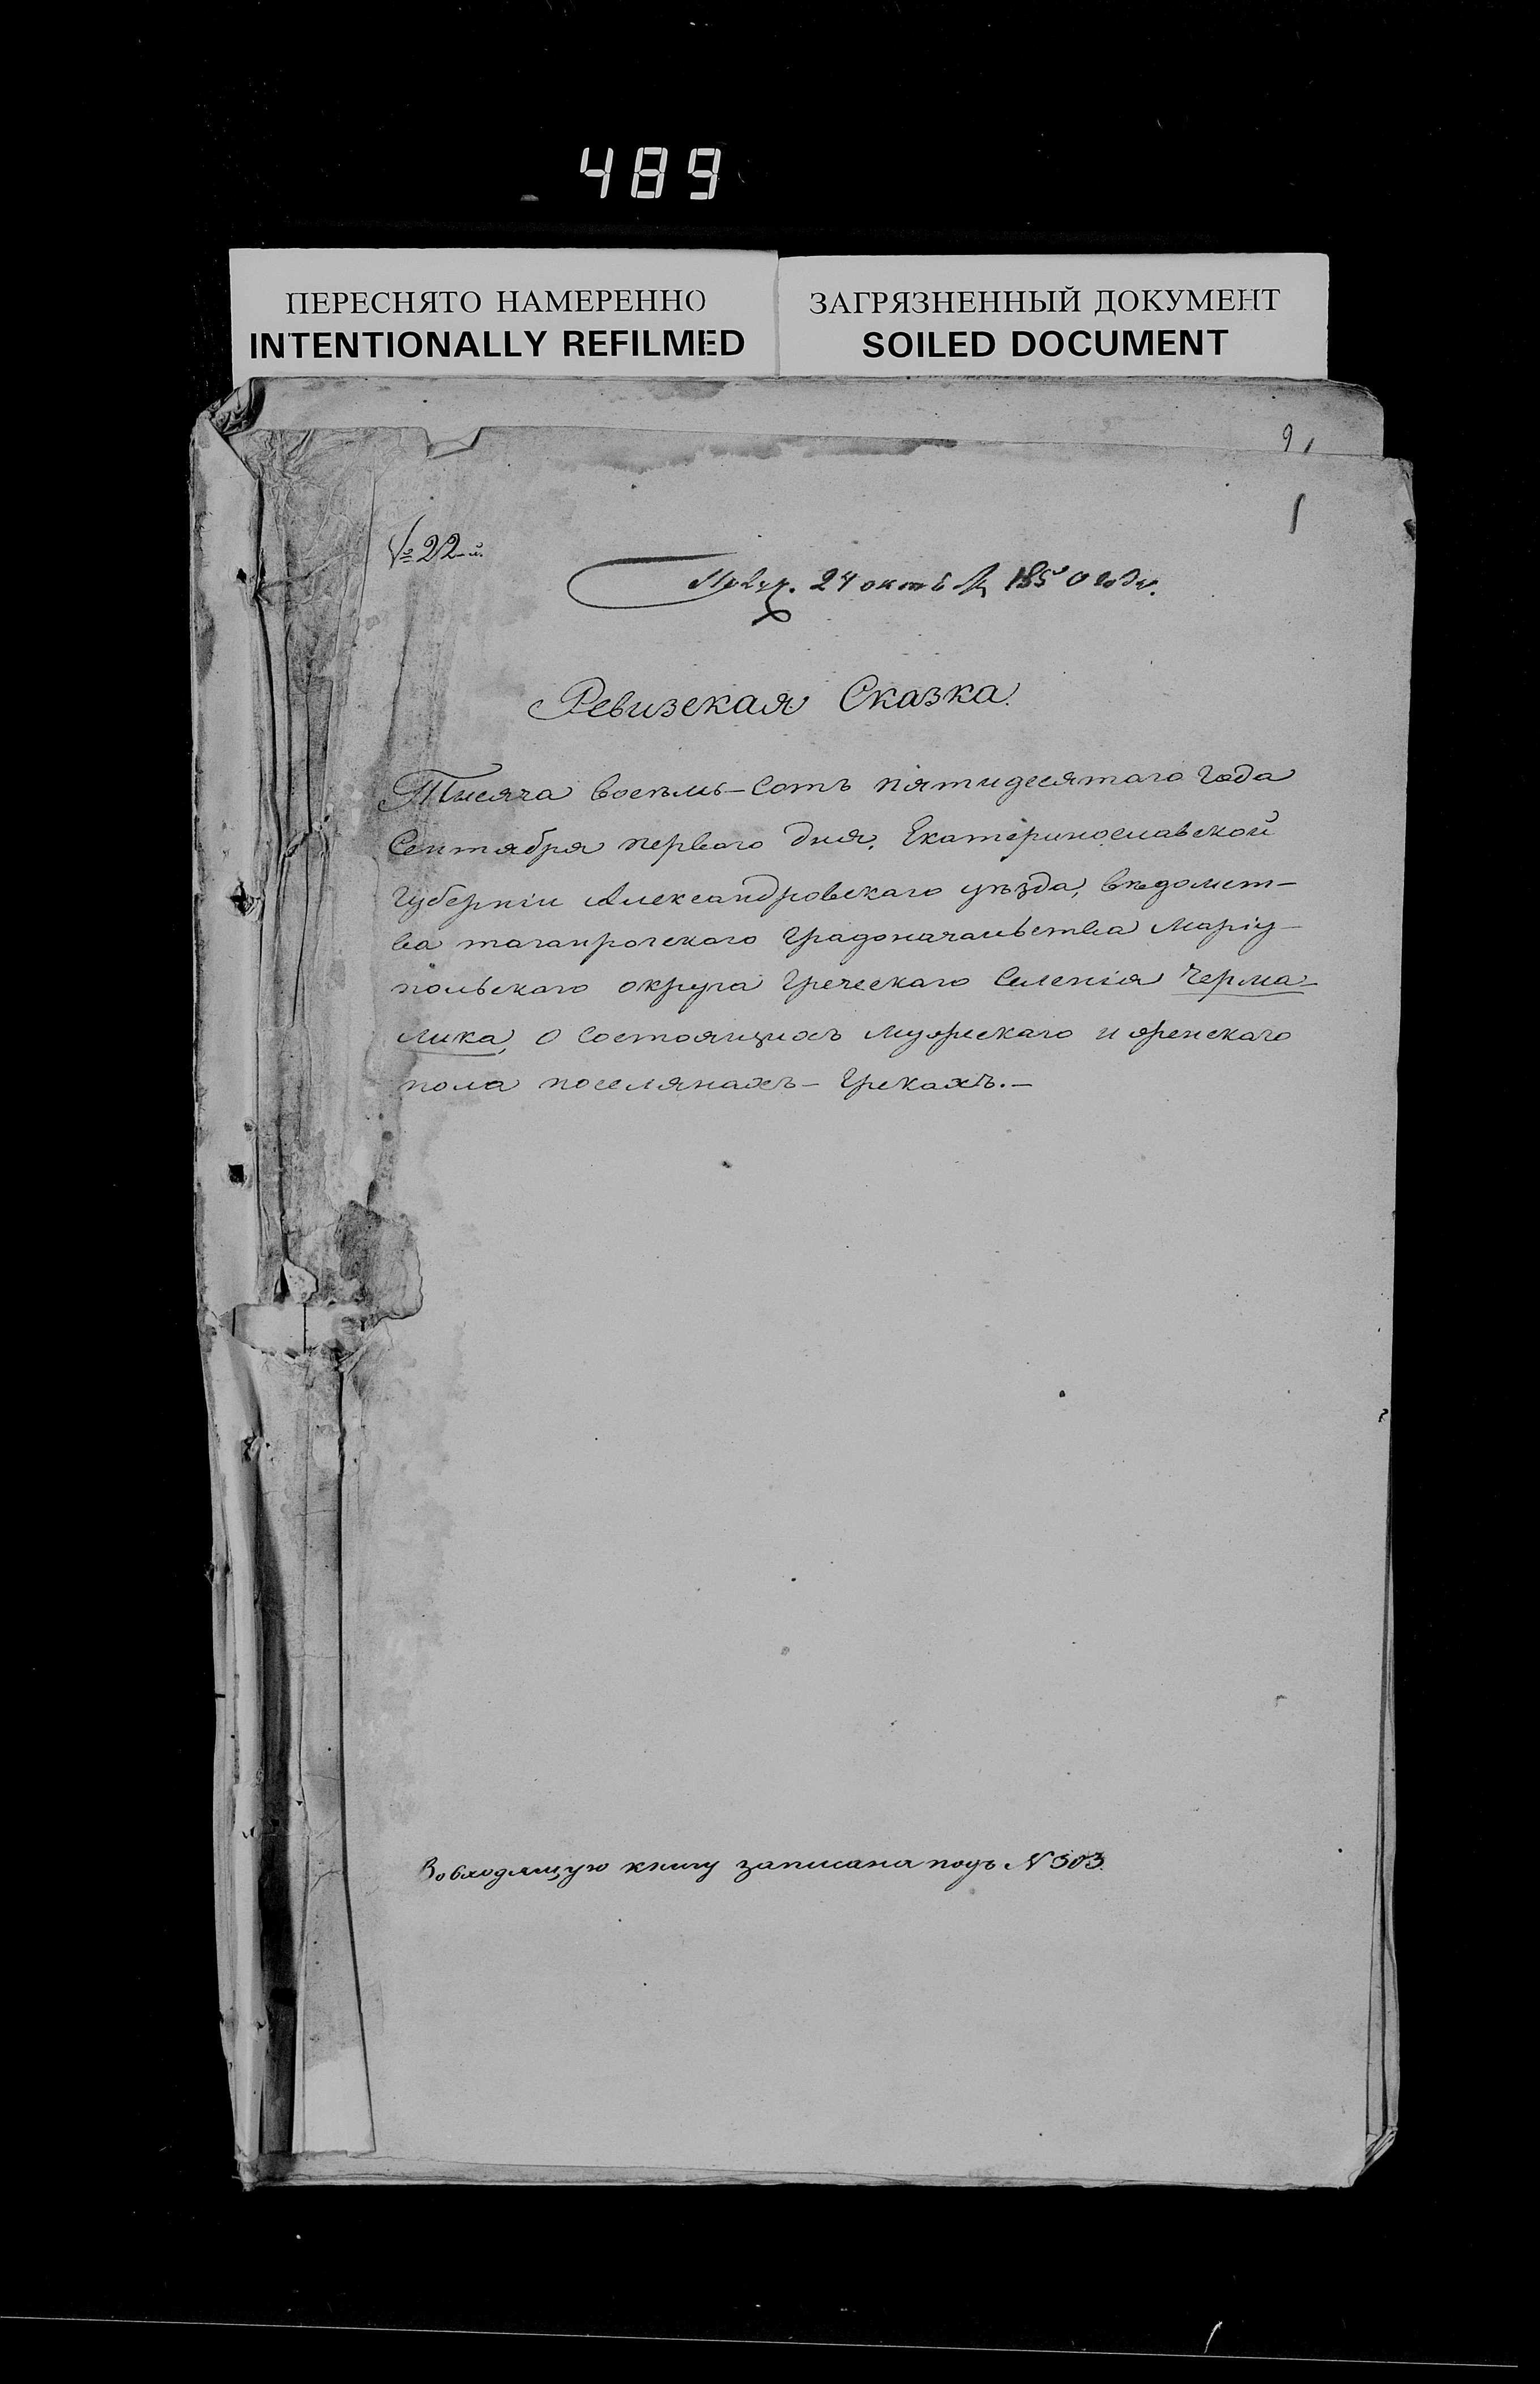 489
ПЕРЕСНЯТО НАМЕРЕННО
INTENTIONALLY REFILMED
ЗАГРЯЗНЕННЫЙ ДОКУМЕНТ
SOILED DOCUMENT
1
№ 22-й.
24 октб 1850 года.
Ревизская Сказка.
Тысяча восемь-сотъ пятидесятаго года
Сентября перваго дня, Екатеринославской
Губерніи Александровскаго уѣзда, вѣдомст-
ва таганрогскаго Градоначальства Маріу-
польскаго округа Греческаго Селенія Черма-
лика, о состоящихъ мужескаго и женскаго
пола поселянахъ - Грекахъ.-
Во входящую книгу записана подъ N 303.